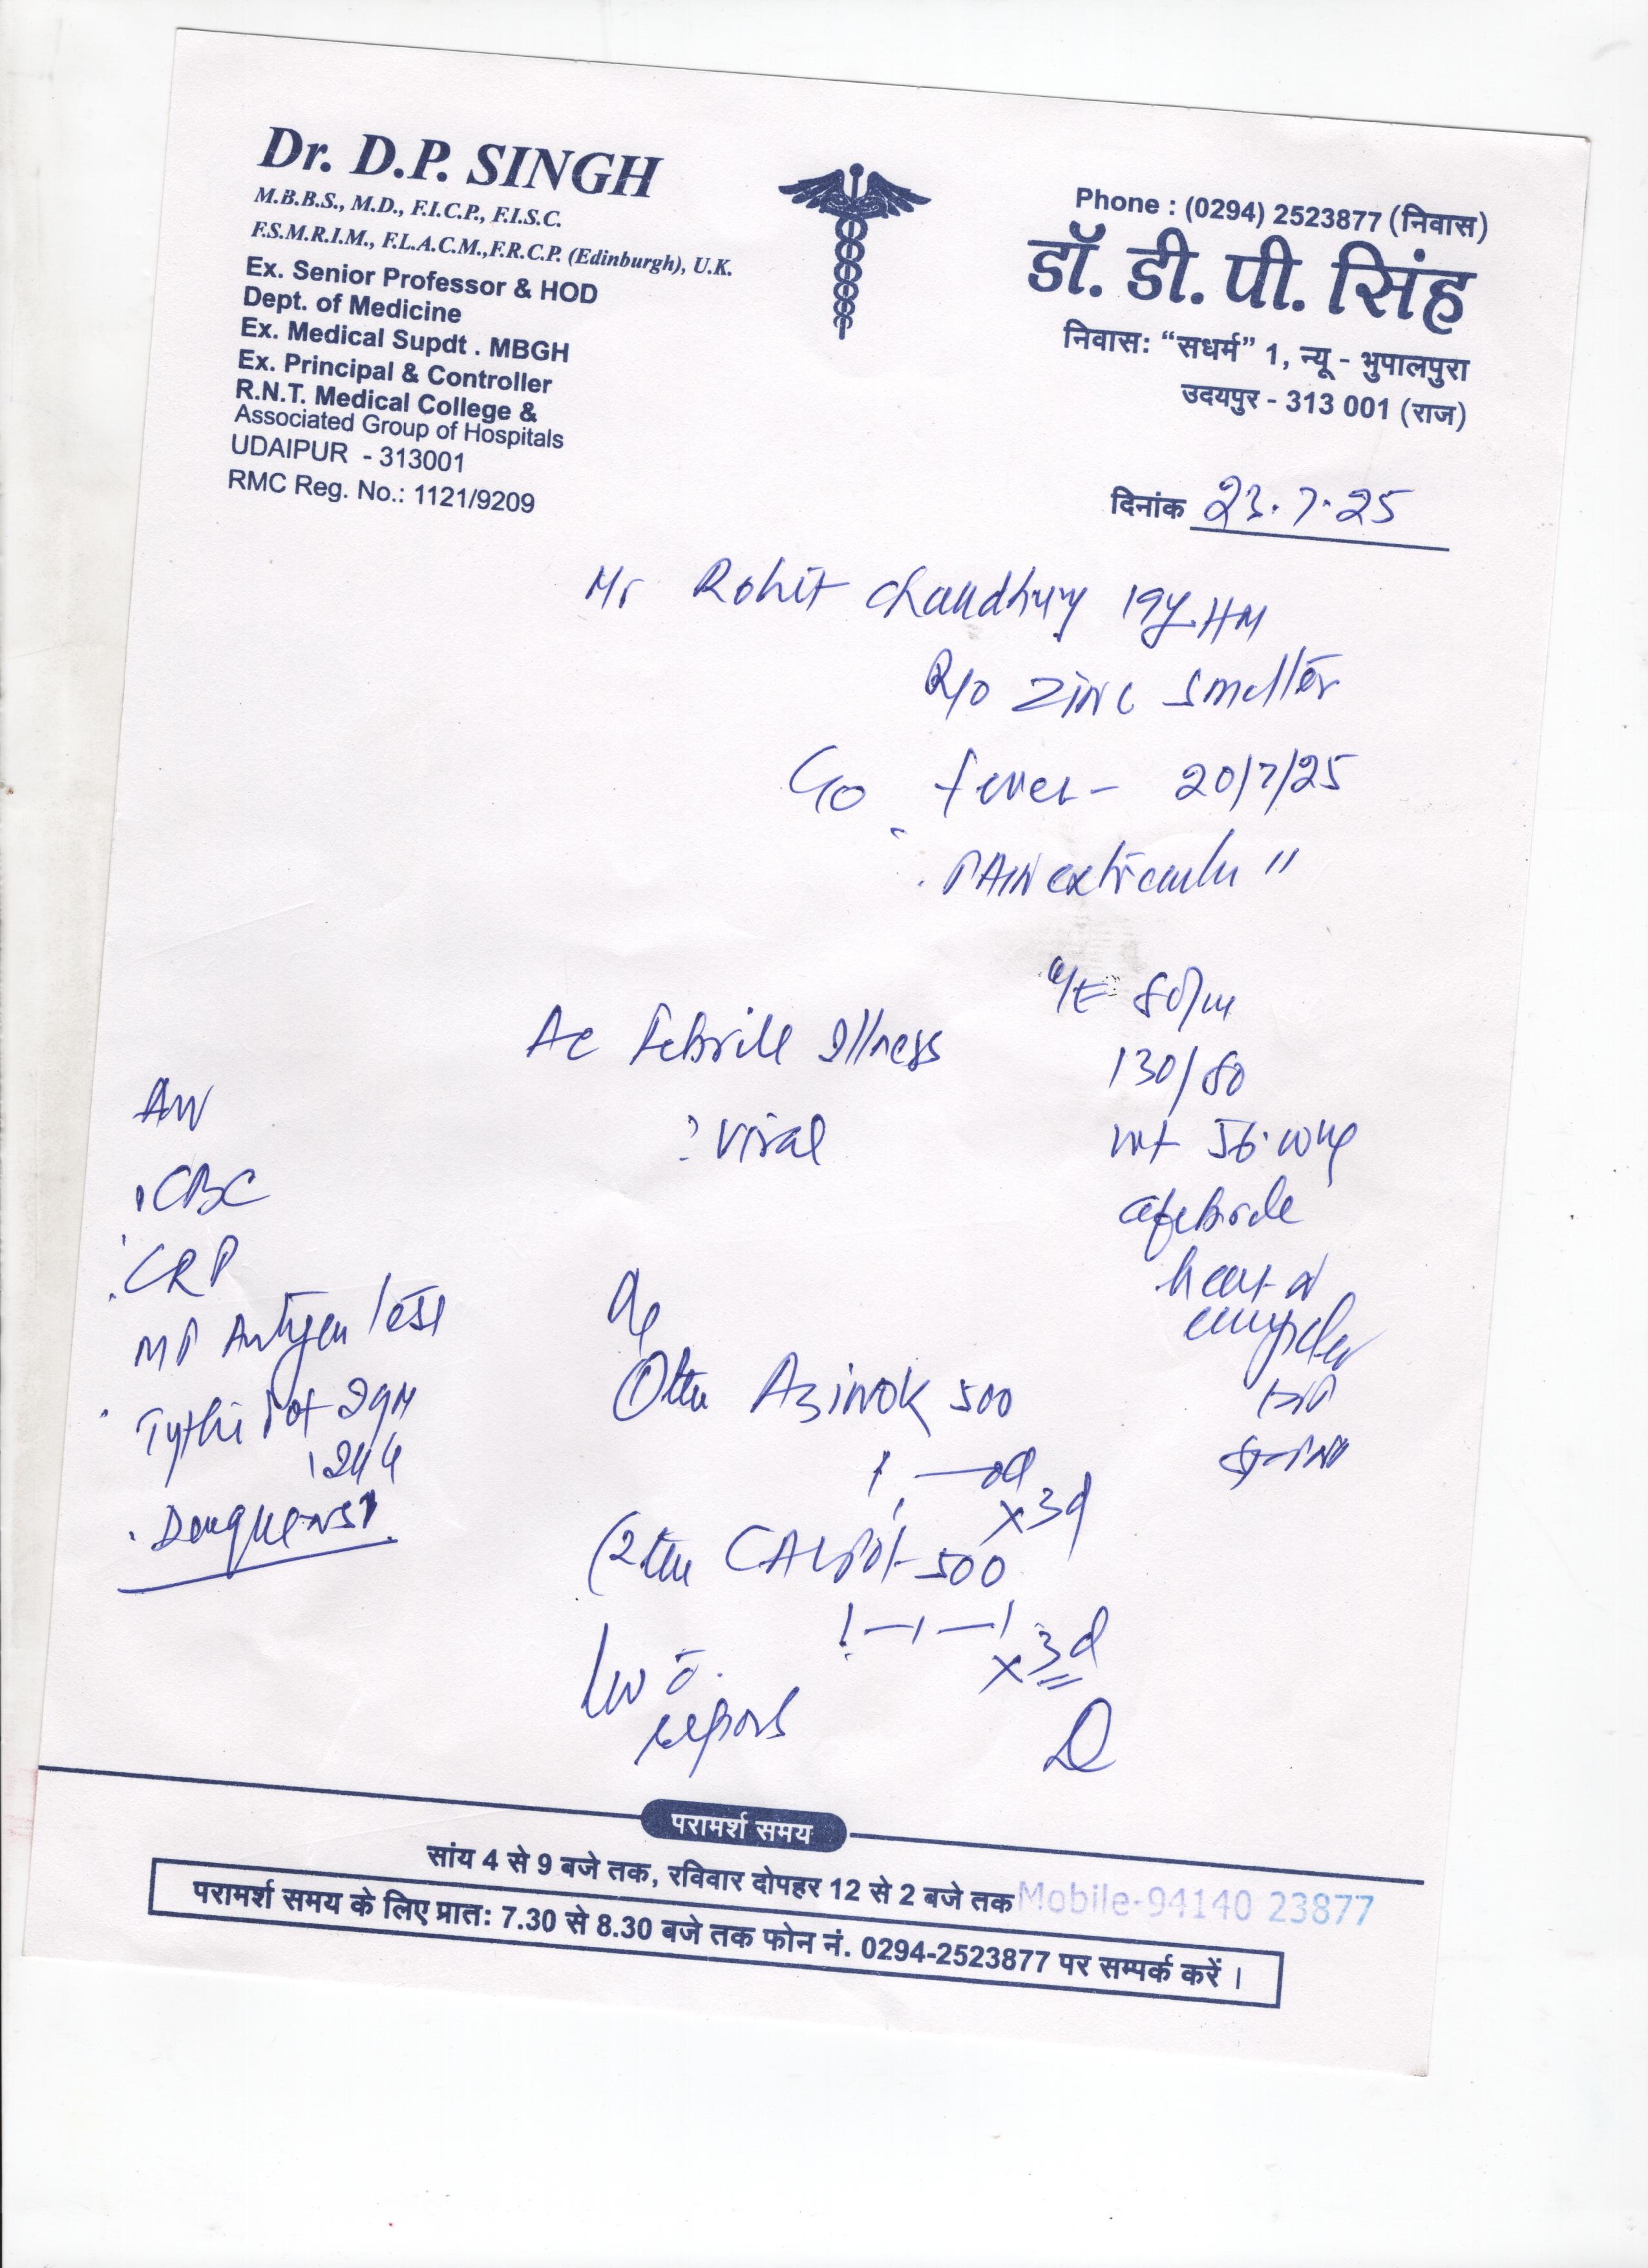 Dr. D.P. SINGH
M.B.B.S., M.D., F.I.C.P., F.I.S.C.
F.S.M.R.I.M., F.L.A.C.M.,F.R.C.P. (Edinburgh), U.K.
Ex. Senior Professor & HOD
Dept. of Medicine
Ex. Medical Supdt . MBGH
Ex. Principal & Controller
R.N.T. Medical College &
Associated Group of Hospitals
UDAIPUR - 313001
RMC Reg. No.: 1121/9209
Phone : (0294) 2523877 (निवास)
डॉ. डी. पी. सिंह
निवास: “सधर्म” 1, न्यू - भुपालपुरा
उदयपुर - 313 001 (राज)
दिनांक 23.7.25
Mr Rohit Chaudhury 19y HM
R/o Zinc Smelter
C/o fever - 20/7/25
PAIN "
O/E 80/m
130/80
wt 56.
afebrile
heart
Ac Febrile Illness
? Viral
CBC
CRP
MP Antigen Test
Typhi Dot IgM
IgG
Dengue NS1
Azinok 500
1 — od
x 3d
CALPOL 500
1 — 1 — 1
x 3d
reports
परामर्श समय
सांय 4 से 9 बजे तक, रविवार दोपहर 12 से 2 बजे तक Mobile-94140 23877
परामर्श समय के लिए प्रात: 7.30 से 8.30 बजे तक फोन नं. 0294-2523877 पर सम्पर्क करें ।